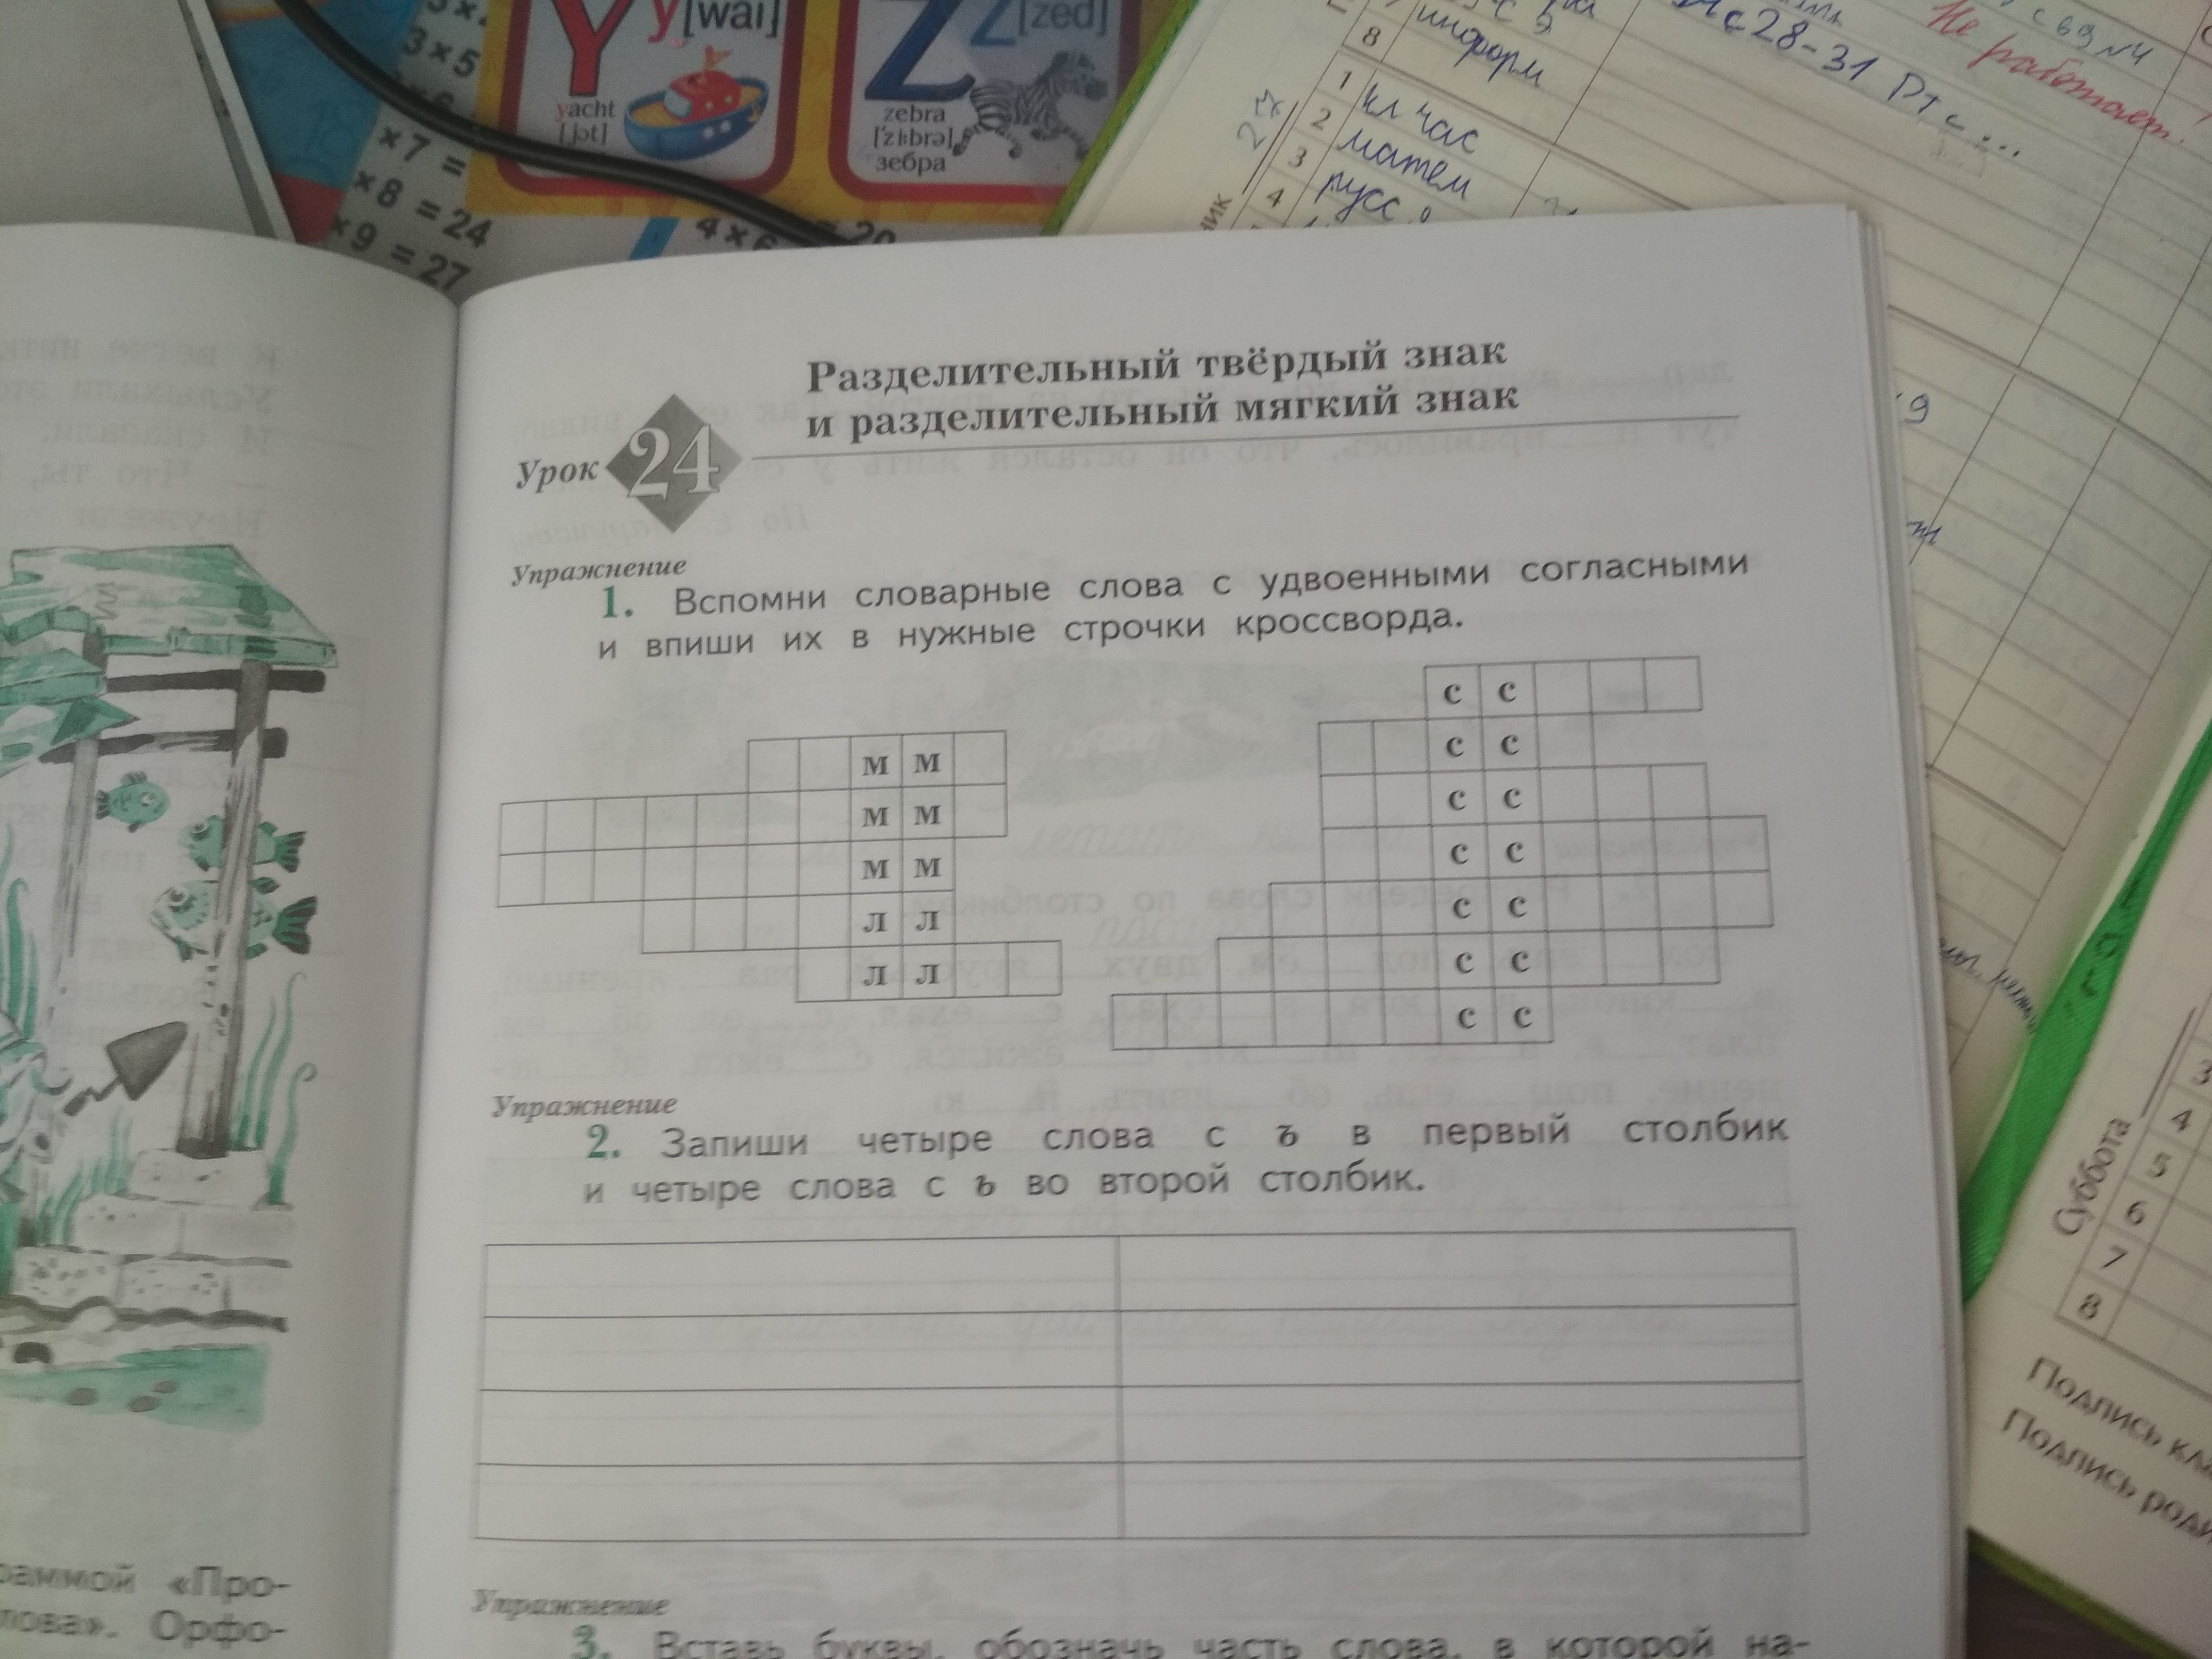 3×5
×7 =
×8 = 24
×9 = 27
4×6
20
Y y [wai]
yacht
[jɔt]
Z z [zed]
zebra
['zi:brə]
зебра
8 информ
1 кл час
2 матем
3 русс
4
с 28-31 РТ с ...
с 69 №4
Не работает!
Разделительный твёрдый знак
и разделительный мягкий знак
Урок 24
Упражнение
1. Вспомни словарные слова с удвоенными согласными
и впиши их в нужные строчки кроссворда.
м м
м м
м м
л л
л л
с с
с с
с с
с с
с с
с с
с с
Упражнение
2. Запиши четыре слова с ъ в первый столбик
и четыре слова с ь во второй столбик.
Упражнение
3. Вставь буквы, обозначь часть слова, в которой на-
«Про-
Орфо-
Суббота
3
4
5
6
7
8
Подпись
Подпись